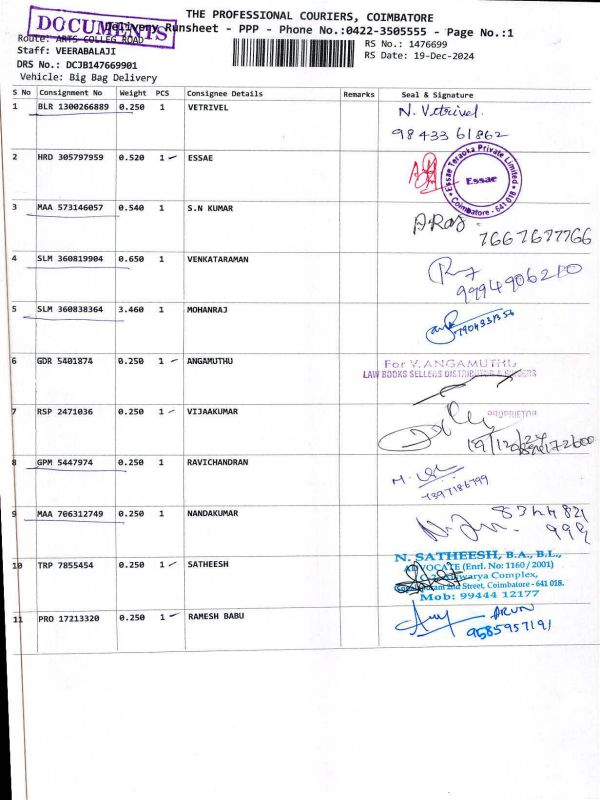 THE PROFESSIONAL COURIERS, COIMBATORE
DOCUMENTS
Delivery Runsheet - PPP - Phone No.:0422-3505555 - Page No.:1
Route: ARTS COLLEG ROAD
RS No.: 1476699
Staff: VEERABALAJI
RS Date: 19-Dec-2024
DRS No.: DCJB147669901
Vehicle: Big Bag Delivery
S No Consignment No Weight PCS Consignee Details Remarks Seal & Signature
1 BLR 1300266889 0.250 1 VETRIVEL N. Vetrivel.
98433 61862
2 HRD 305797959 0.520 1 ESSAE
Essae Teraoka Private Limited
Essae
Coimbatore - 641 018.
3 MAA 573146057 0.540 1 S.N KUMAR
7667677766
4 SLM 360819904 0.650 1 VENKATARAMAN
9994906210
5 SLM 360838364 3.460 1 MOHANRAJ
6 GDR 5401874 0.250 1 ANGAMUTHU For V. ANGAMUTHU
LAW BOOKS SELLERS DISTRIBUTOR &
PROPRIETOR
7 RSP 2471036 0.250 1 VIJAAKUMAR
19/12/24
8 GPM 5447974 0.250 1 RAVICHANDRAN
7397186799
9 MAA 706312749 0.250 1 NANDAKUMAR
10 TRP 7855454 0.250 1 SATHEESH N. SATHEESH, B.A., B.L.,
ADVOCATE (Enrl. No: 1160 / 2001)
Complex,
2nd Street, Coimbatore - 641 018.
Mob: 99444 12177
11 PRO 17213320 0.250 1 RAMESH BABU ARUN
9585957191